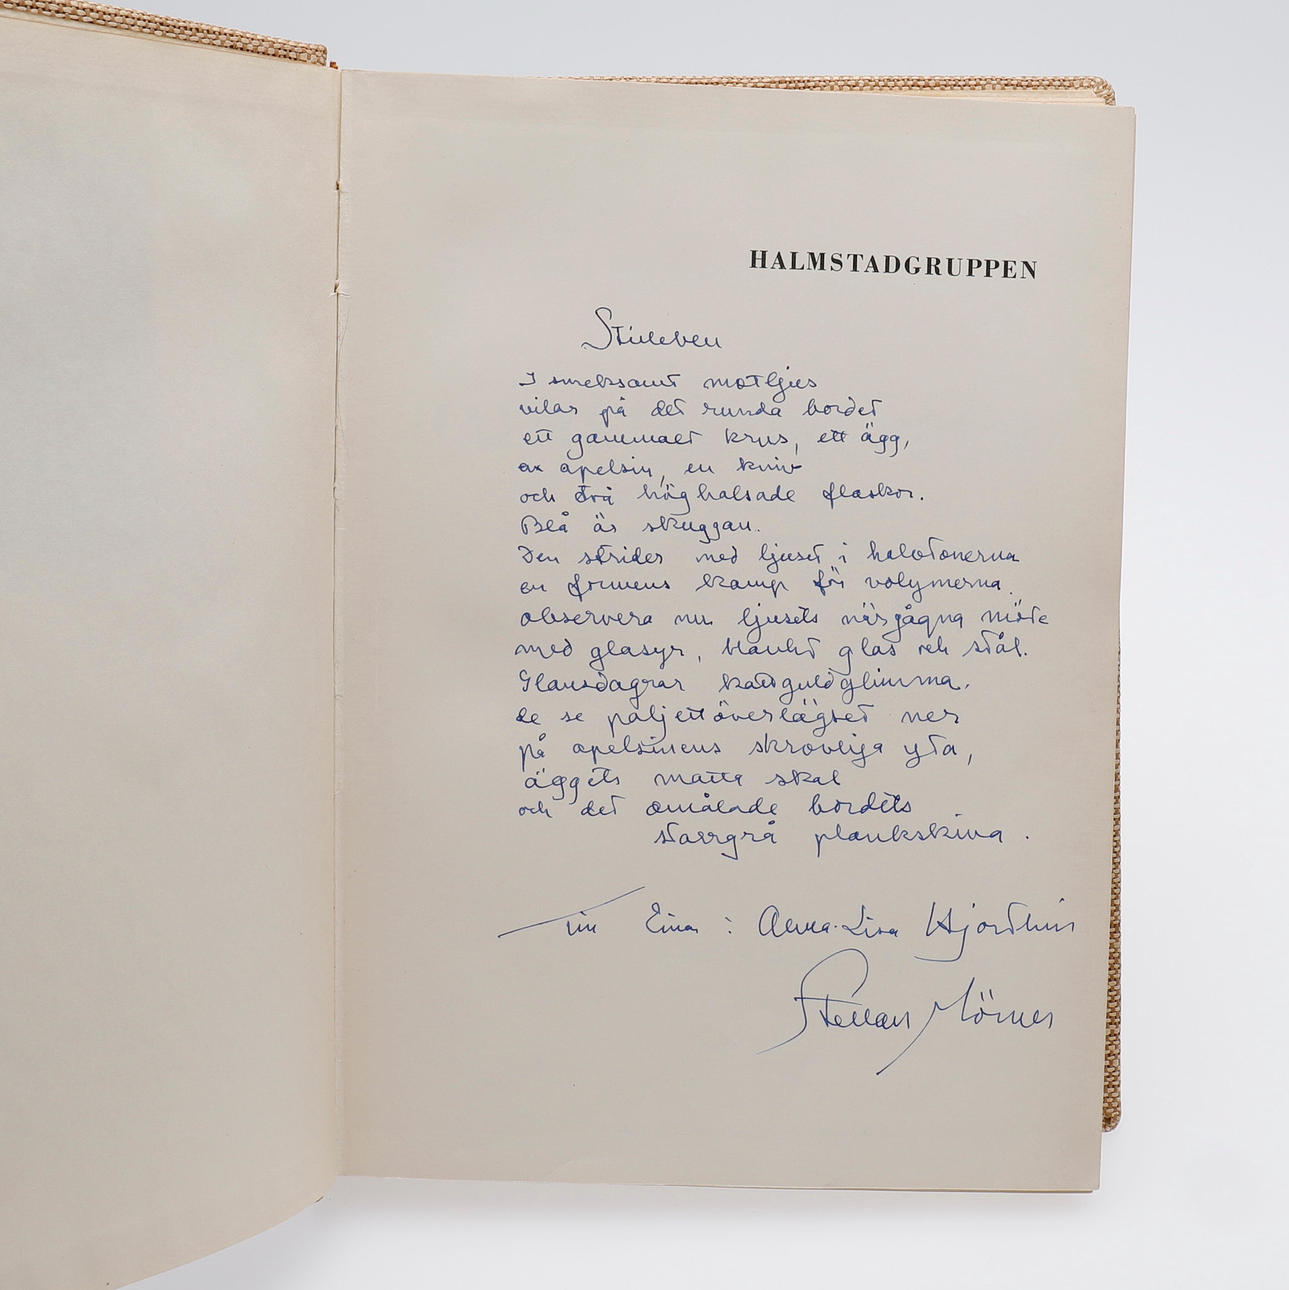 HALMSTADGRUPPEN
Stilleben
I smeksamt motljus
vilar på det runda bordet
ett gammalt krus, ett ägg,
en apelsin, en kniv
och två höghalsade flaskor.
Blå är skuggan.
Den strider med ljuset i halvtonerna
en formens kamp för volymerna.
observera nu ljusets närgågna möte
med glasyr, blankt glas och stål.
Glansdagrar kattguldglimma,
de se paljettöverlägset ner
på apelsinens skrovliga yta,
äggets matta skal
och det omålade bordets
starrgrå plankskiva.
till Einar : Anna-Lisa
Stellan Mörner